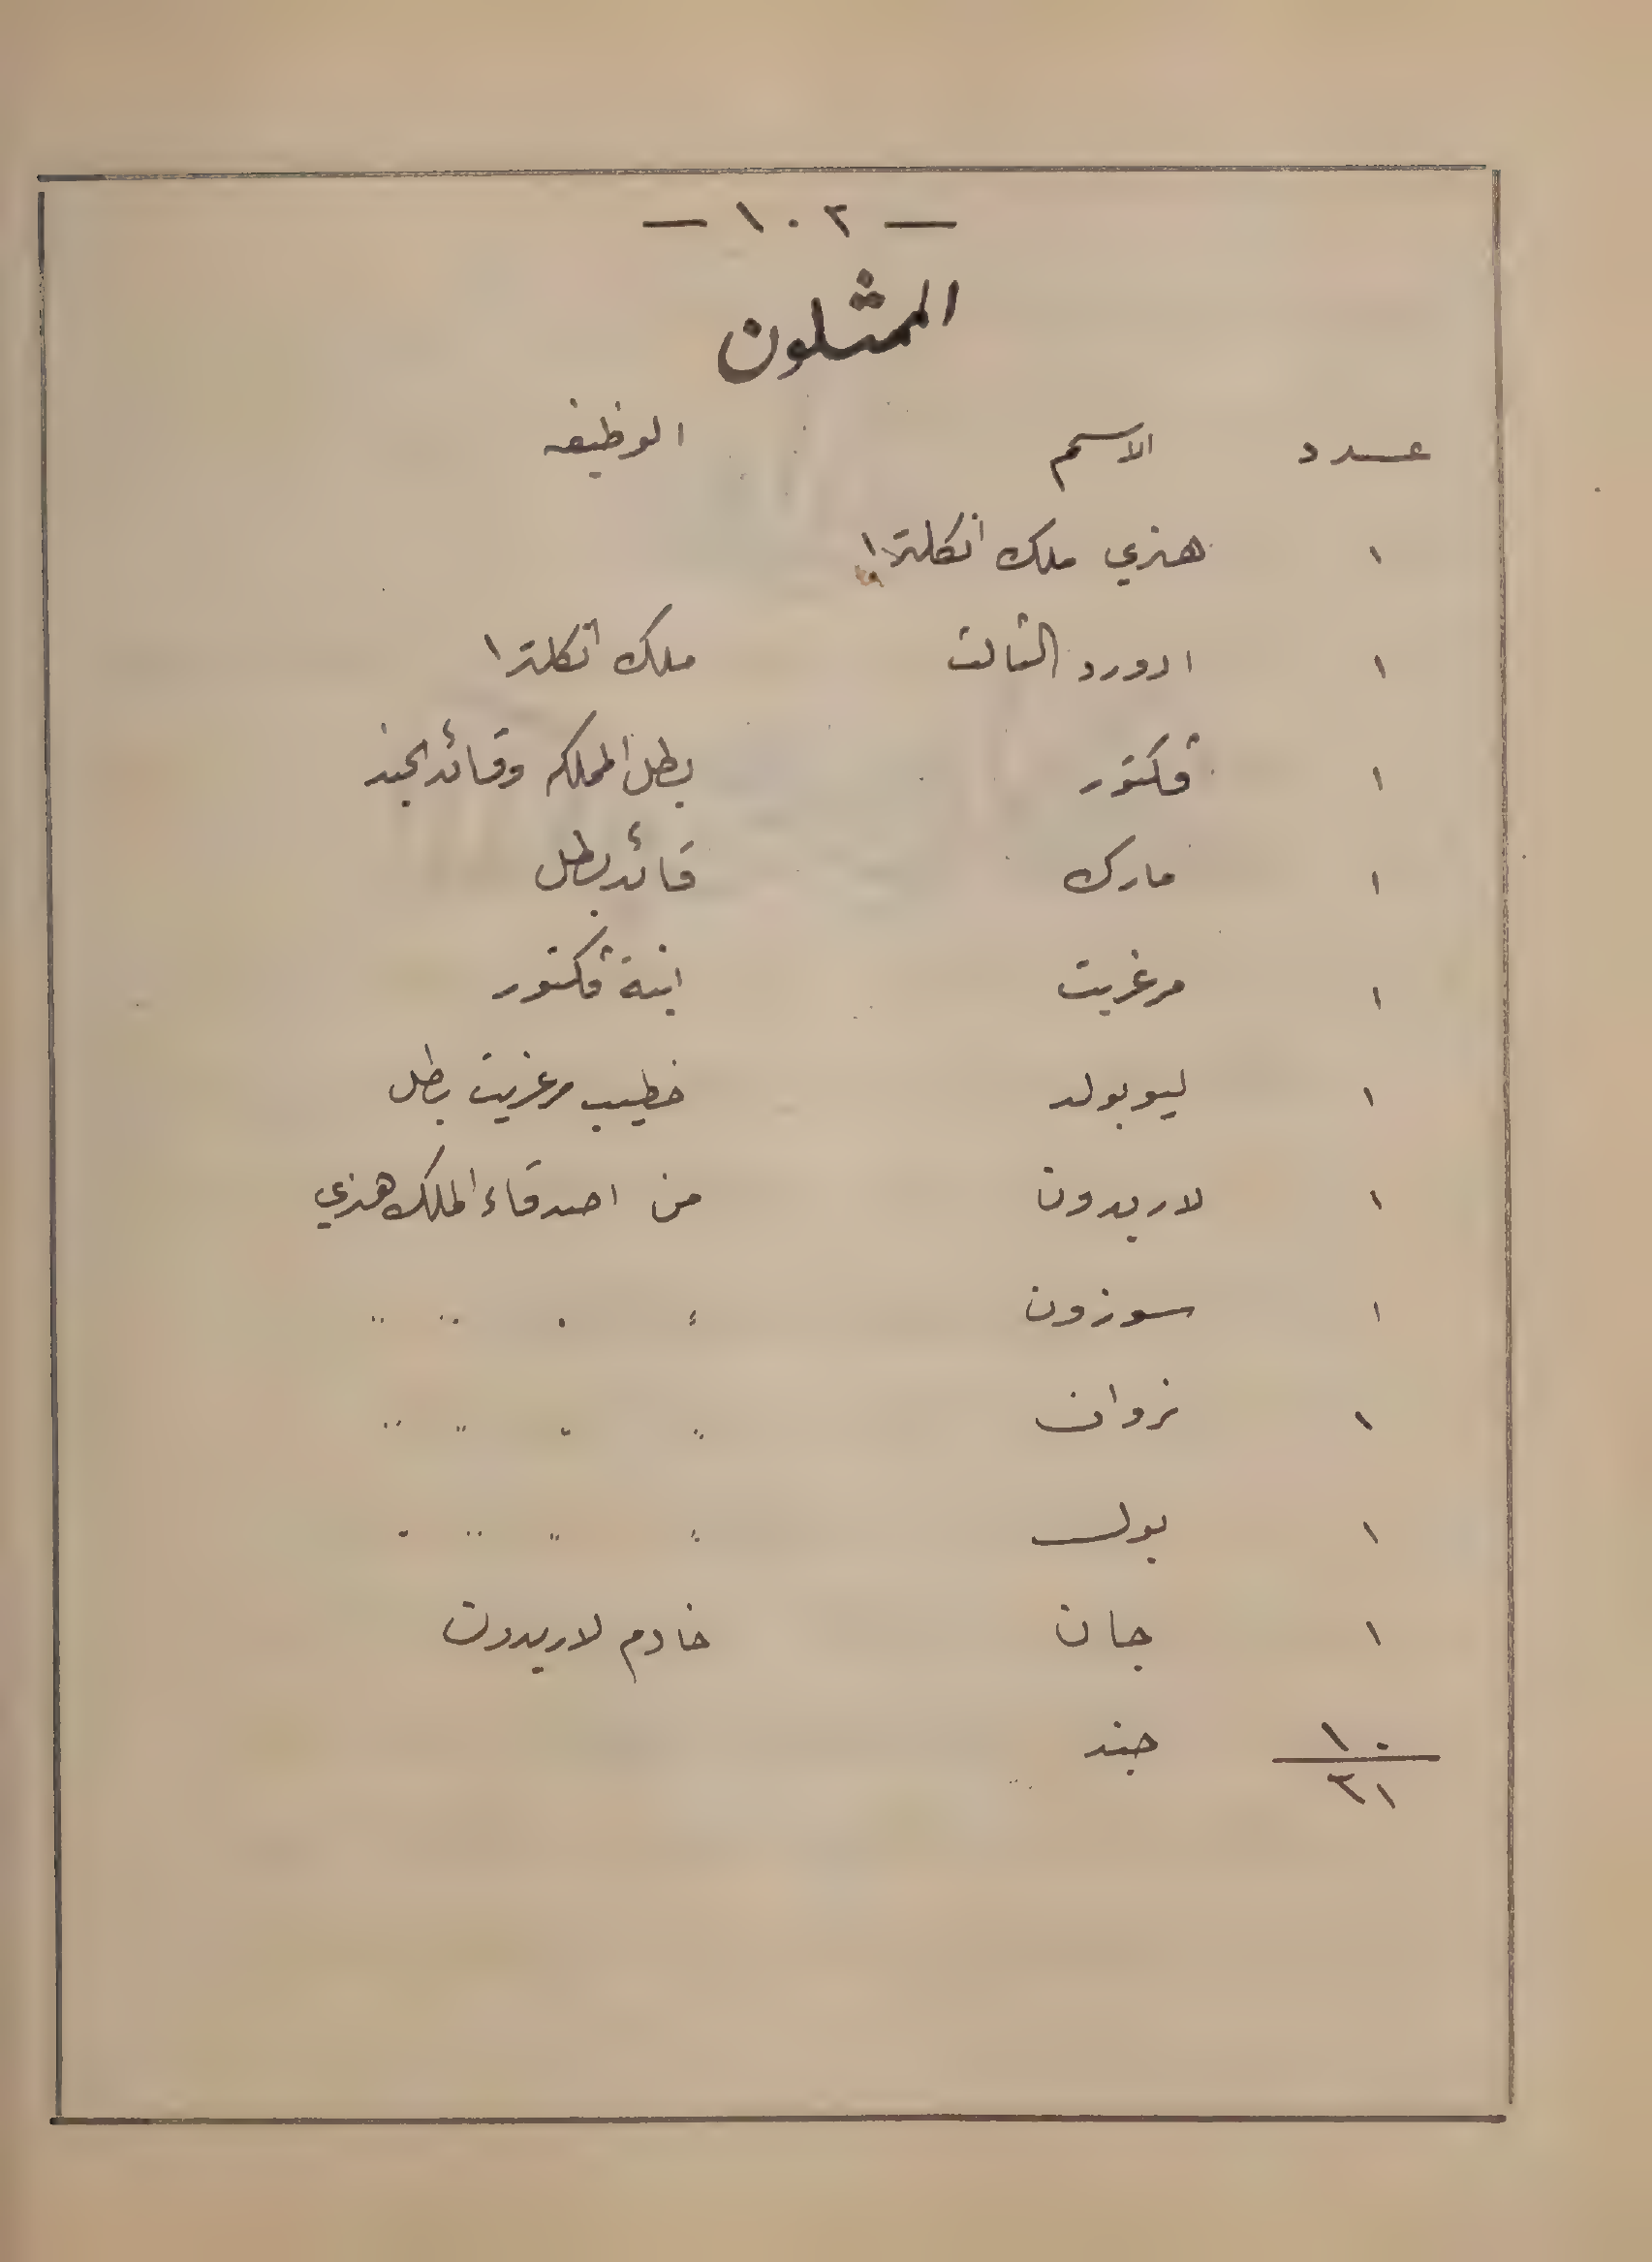 — ١٠٢ —
الممثلون
عدد الاسم الوظيفه
١ هنري ملك انكلترا
١ ادورد الثالث ملك انكلترا
١ ڤكتور بطل المملكه وقائد الجند
١ مارك قائد بطل
١ مرغريت ابنة ڤكتور
١ ليوبولد خطيب مرغريت بطل
١ لاريدون من اصدقاء الملك هنري
١ سوزون " " " "
١ نروان " " " "
١ بول " " " "
١ جان خادم لاريدون
١٠ جند
٢١